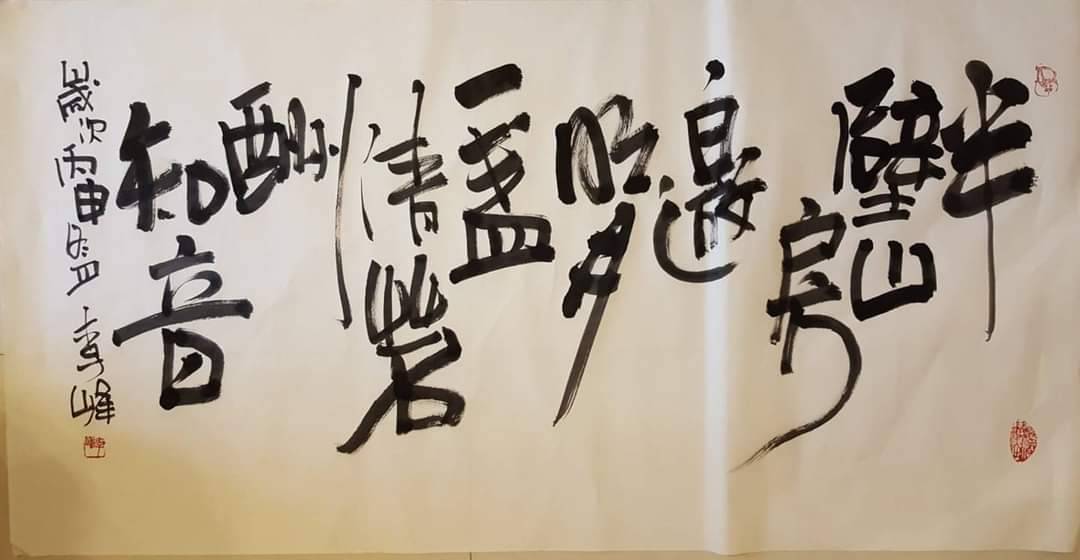 半
壁山
房
邀
明月
一盏
清茗
酬
知音
歲次丙申冬 李峰